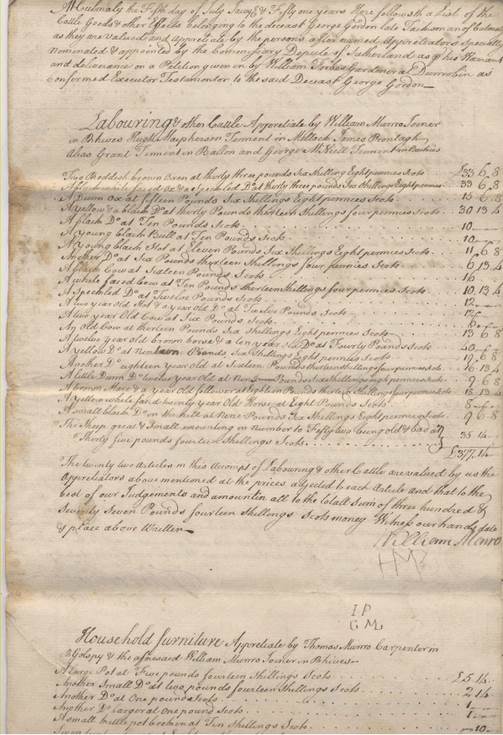 At Culmaly the Fifth day of July Javijc & Fifty one years Here followeth a List of the
Cattle Goods & other Effects belonging to the deceast George Gordon late Tacksman of Culmaly
as they are valued and appretiate by the persons after named Appretiators specially
nominated & appointed by the Commissary Depute of Sutherland as p his Warrant
and deliverance on a Petition given in by William Forbes Gardner at Dunrobin as
Confirmed Executor Testamentor to the said Deceast George Gordon
Labouring & other Cattle Appretiate by William Munro Joiner
in Rhives Hugh Macpherson Tennent in James
Alias Grant Tennent in Ballon and George Tennent in
Two Reddish brown Oxen at thirty three pounds Six Shilling Eight pennies £33 6 8
A faced ox & a speckled Do at thirty three pounds Six Shillings Eight pennies 33 6 8
A Dunn Ox at fifteen Pounds Six Shillings Eight pennies Scots 15 6 8
A yellow & a black Do at thirty Pounds thirteen Shillings four pennies Scots 30 13 4
A black Do at Ten Pounds Scots 10
A young black Bull at Ten Pounds Scots 10
A Young black Stot at Eleven Pounds Six Shillings Eight pennies Scots 11 6 8
Another Do at Six Pounds thirteen Shillings four pennies Scots 6 13 4
A Cow at Sixteen Pounds Scots 16
A white faced Cow at Ten Pounds thirteen Shillings four pennies Scots 10 13 4
A Speckled Do at Twelve Pounds Scots 12
A two year old Stot & a year old Do at Twelve Pounds Scots 12
A two year Old Cow at Six Pounds Scots 6
An Old Cow at thirteen Pounds Six Shillings Eight pennies Scots 13 6 8
A twelve year old brown horse & a ten year Do at Fourty Pounds Scots 40
A yellow Do at Pounds Six Shillings Eight pennies Scots 6 8
Another Do eighteen year old at Sixteen Pounds thirteen Shillings four pennies Scots 16 13 4
A little Dunn Do twelve year old at Nine Pounds Six Shillings eight pennies Scots 9 6 8
A brown Mare & a year old at Eighteen Pounds thirteen Shillings four pennies 18 13 4
A yellow white faced twenty year Old Horse at Eight Pounds Scots 8
A small black Do in the hill at Nine Pounds Six Shillings Eight pennies Scots 9 6 8
The Sheep great & Small amounting in number to Fifty two being old & bad at
Thirty five pounds fourteen Shillings Scots 35 14
£377 14
The twenty two Articles in this Accompt of Labouring & other Cattle are valued by us the
Appretiators above mentioned at the prices adjected to each Article and that to the
best of our Judgements and amount in all to the totall Sum of three hundred &
Seventy Seven Pounds fourteen Shillings Scots money Witness our hands date
& place above Written
William Munro
HM
I P
G M
Household furniture Appretiate by Thomas Munro Carpenter in
Golspy & the aforesaid William Munro Joiner in Rhives
A Large Pot at Five pounds fourteen Shillings Scots £5 14
Another Small Do at two pounds fourteen Shillings Scots 2 14
Another Do at One pound Scots 1
Another Do larger at one pound Scots 1
A small little pot broken at Ten Shillings Scots 10